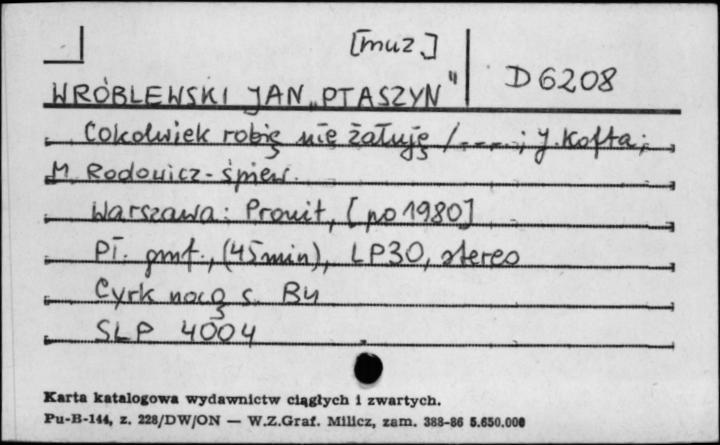 [muz.]
D 6208
WRÓBLEWSKI JAN „PTASZYN"
Cokolwiek robię nie żałuję / -.-.-.; J. Kofta;
M. Rodowicz - śpiew.
Warszawa: Pronit, [po 1980]
Pł. gmf., (45 min), LP30, stereo
Cyrk nocą s. B4
SLP 4004
Karta katalogowa wydawnictw ciągłych i zwartych.
Pu-B-144, z. 228/DW/ON — W.Z.Graf. Milicz, zam. 388-86 5.650.000